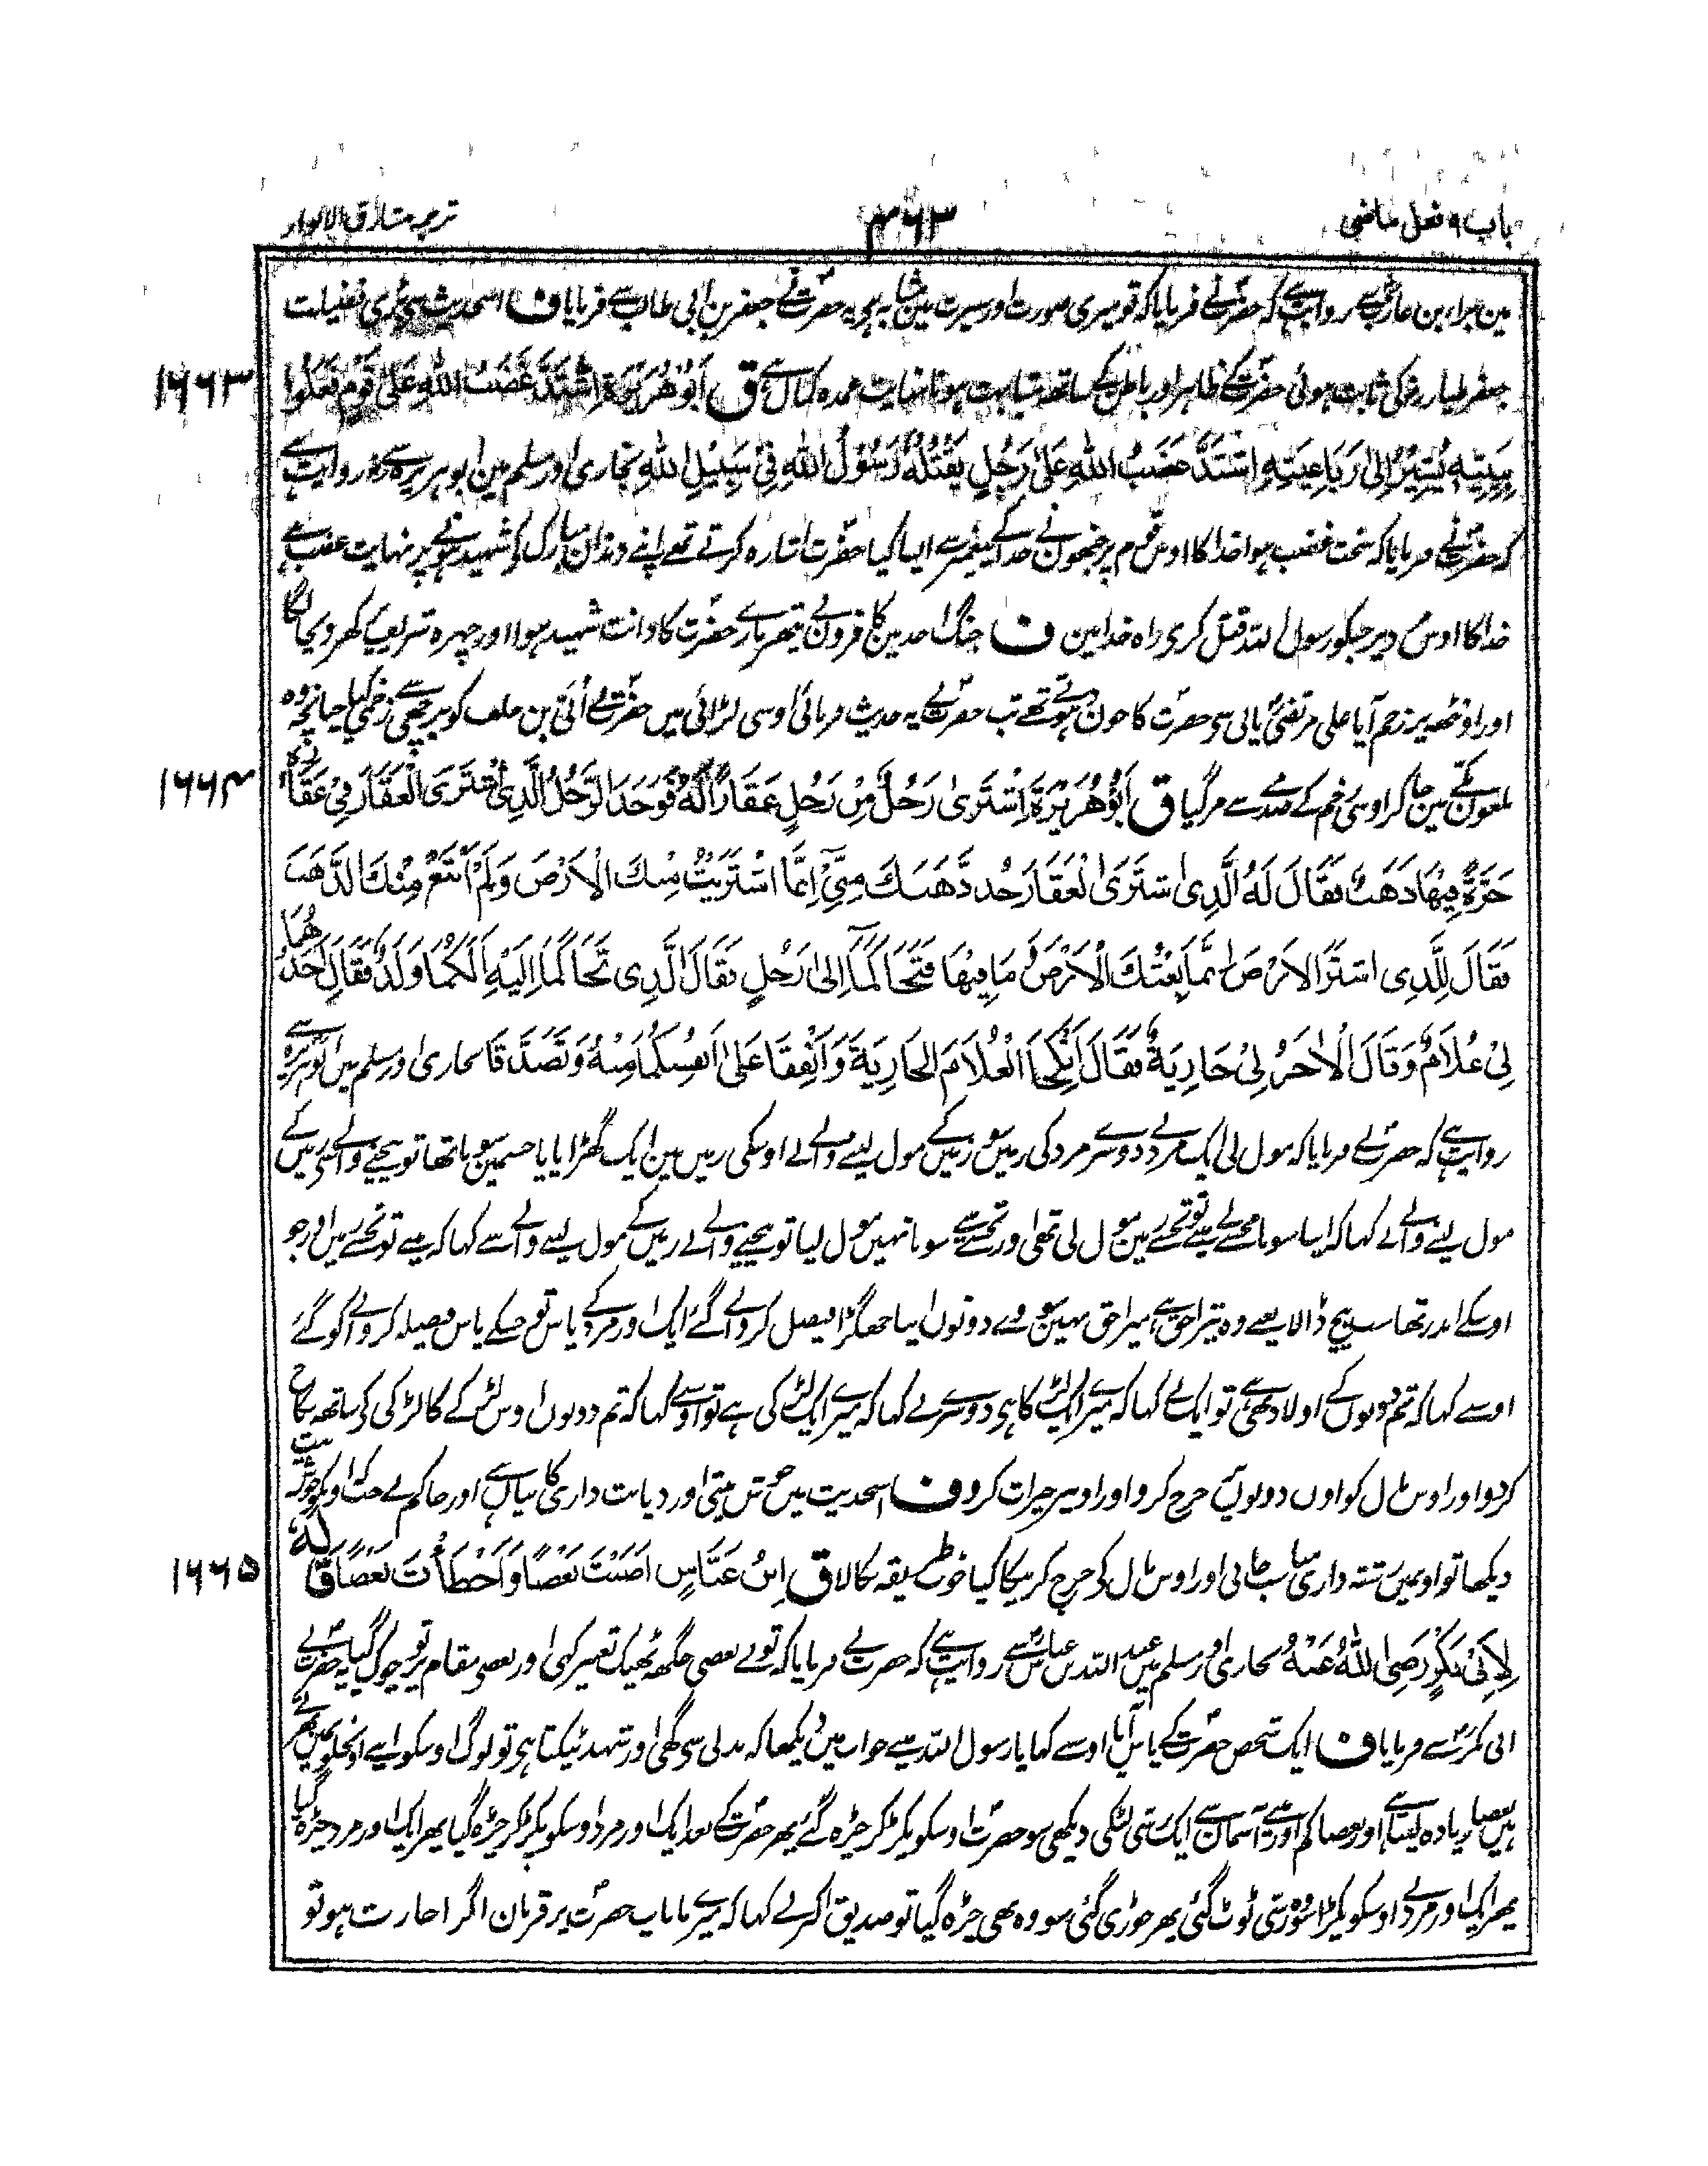 باب ۹ فعل ماضی
۴۶۳
ترجمہ مشارق الانوار
مین براء بن عازب سے روایت ہے کہ حضرت نے فرمایا کہ تو میری صورت اور سیرت مین مشابہ ہی یہ حضرت نے جعفر بن ابی طالب سے فرمایا ف اسحدیث سے بڑی فضیلت
جعفر طیار رض کی ثابت ہوئی حضرت کے ظاہر اور باطن کے ساتھ مشابہت ہونا نہایت عمدہ کمال ہے ق اَبُوْ هُرَيْرَةَ اِشْتَدَّ غَضَبُ اللّٰهِ عَلٰى قَوْمٍ فَعَلُوْا
۱۶۶۳
بِنَبِيِّهٖ يُشِيْرُ اِلٰى رَبَاعِيَتِهٖ اِشْتَدَّ غَضَبُ اللّٰهِ عَلٰى رَجُلٍ يَقْتُلُهٗ رَسُوْلُ اللّٰهِ فِيْ سَبِيْلِ اللّٰهِ بخاری اور مسلم مین ابو ہریرہ سے روایت ہے
کہ حضرت نے فرمایا کہ سخت غضب ہوا خدا کا اوس قوم پر جنھون نے خدا کے پیغمبر سے ایسا کیا حضرت اشارہ کرتے تھے اپنے دندان مبارک کو شہید ہونے پر نہایت غضب ہے
خدا کا اوس مرد پر جسکو رسول اللہ قتل کری راہ خدا مین ف جنگ احد مین کافرون نے پتھر مارے حضرت کا دانت شہید ہوا اور چہرہ شریف کھروچا گیا
اور اونٹھ پر زخم آیا علی مرتضی پانی سے حضرت کا خون دھوتے تھے تب حضرت نے یہ حدیث فرمائی اوسی لڑائی میں حضرت نے اُبَی بن خلف کو برچھی سے زخمی کیا چنانچہ وہ
ملعون مکے مین جا کر اوسی زخم کے صدمے سے مر گیا ق اَبُوْ هُرَيْرَةَ اِشْتَرٰى رَجُلٌ مِنْ رَجُلٍ عَقَارًا لَهٗ فَوَجَدَ الرَّجُلُ الَّذِى اشْتَرَى الْعَقَارَ فِيْ عَقَارِهٖ
۱۶۶۴
جَرَّةً فِيْهَا ذَهَبٌ فَقَالَ لَهُ الَّذِى اشْتَرَى الْعَقَارَ خُذْ ذَهَبَكَ مِنِّيْ اِنَّمَا اشْتَرَيْتُ مِنْكَ الْاَرْضَ وَلَمْ اَبْتَعْ مِنْكَ الذَّهَبَ
فَقَالَ لِلَّذِى اشْتَرَى الْاَرْضَ اِنَّمَا بِعْتُكَ الْاَرْضَ وَمَا فِيْهَا فَتَحَاكَمَا اِلٰى رَجُلٍ فَقَالَ الَّذِى تَحَاكَمَا اِلَيْهِ اَلَكُمَا وَلَدٌ فَقَالَ اَحَدُهُمَا
لِيْ غُلَامٌ وَقَالَ الْاٰخَرُ لِيْ جَارِيَةٌ فَقَالَ اَنْكِحَا الْغُلَامَ الْجَارِيَةَ وَاَنْفِقَا عَلٰى اَنْفُسِكُمَا مِنْهُ وَتَصَدَّقَا بخاری اور مسلم میں ابو ہریرہ سے
روایت ہے کہ حضرت نے فرمایا کہ مول لی ایک مرد نے دوسرے مرد کی زمین سو زمین کے مول لینے والے نے اوسکی زمین مین ایک گھڑا پایا جسمین سونا تھا تو بیچنے والے سے زمین کے
مول لینے والے نے کہا کہ اپنا سونا مجھسے لے مینے تو تجھسے زمین مول لی تھی اور تجھسے سونا نہیں مول لیا تو بیچنے والے نے زمین کے مول لینے والے سے کہا کہ مینے تو تجھسے زمین اور جو
اوسکے اندر تھا سب بیچ ڈالا یعنے وہ تیرا حق ہے میرا حق نہین سو وے دونوں اپنا جھگڑا فیصل کروانے گئے ایک اور مرد کے پاس تو جسکے پاس فیصلہ کروانے کو گئے
اوسنے کہا کہ تم دونوں کے اولاد بھی ہے تو ایک نے کہا کہ میرے ایک لڑکا ہی دوسرے نے کہا کہ میرے ایک لڑکی ہے تو اوسنے کہا کہ تم دونوں اوس لڑکے کا لڑکی کی ساتھ نکاح
کردو اور اوس مال کو اون دونوں پر خرچ کرو اور اوسپر خیرات کرو ف اسحدیث میں خوش نیتی اور دیانت داری کا بیان ہے اور حاکم نے جب اونکو خوش نیت
دیکھا تو اونمیں رشتہ داری مناسب جانی اور اوس مال کی خرچ کرنیکا کیا خوب طریقہ نکالا ق اِبْنُ عَبَّاسٍ اَصَبْتَ بَعْضًا وَاَخْطَأْتَ بَعْضًا قَالَهٗ
۱۶۶۵
لِاَبِيْ بَكْرٍ رَضِىَ اللّٰهُ عَنْهُ بخاری اور مسلم میں عبد اللہ بن عباس سے روایت ہے کہ حضرت نے فرمایا کہ تونے بعضی جگھہ ٹھیک تعبیر کہی اور بعضی مقام پر تو چوک گیا یہ حضرت نے
ابی بکر سے فرمایا ف ایک شخص حضرت کے پاس آیا اوسنے کہا یا رسول اللہ مینے خواب میں دیکھا کہ بدلی سی گھی اور شہد ٹپکتا ہی تو لوگ اوسکو اپنے انجلو مین بھرتے
ہیں بعضا زیادہ لیتا ہے اور بعضا کم اور مینے آسمان سے ایک رسی لٹکی دیکھی سو حضرت اوسکو پکڑ کر چڑہ گئے پھر حضرت کے بعد ایک اور مرد اوسکو پکڑ کر چڑہ گیا پھر ایک اور مرد چڑہ گیا
پھر ایک اور مرد نے اوسکو پکڑا سو وہ رسی ٹوٹ گئی پھر جوڑی گئی سو وہ بھی چڑہ گیا تو صدیق اکبر نے کہا کہ میرے ما باپ حضرت پر قربان اگر اجازت ہو تو